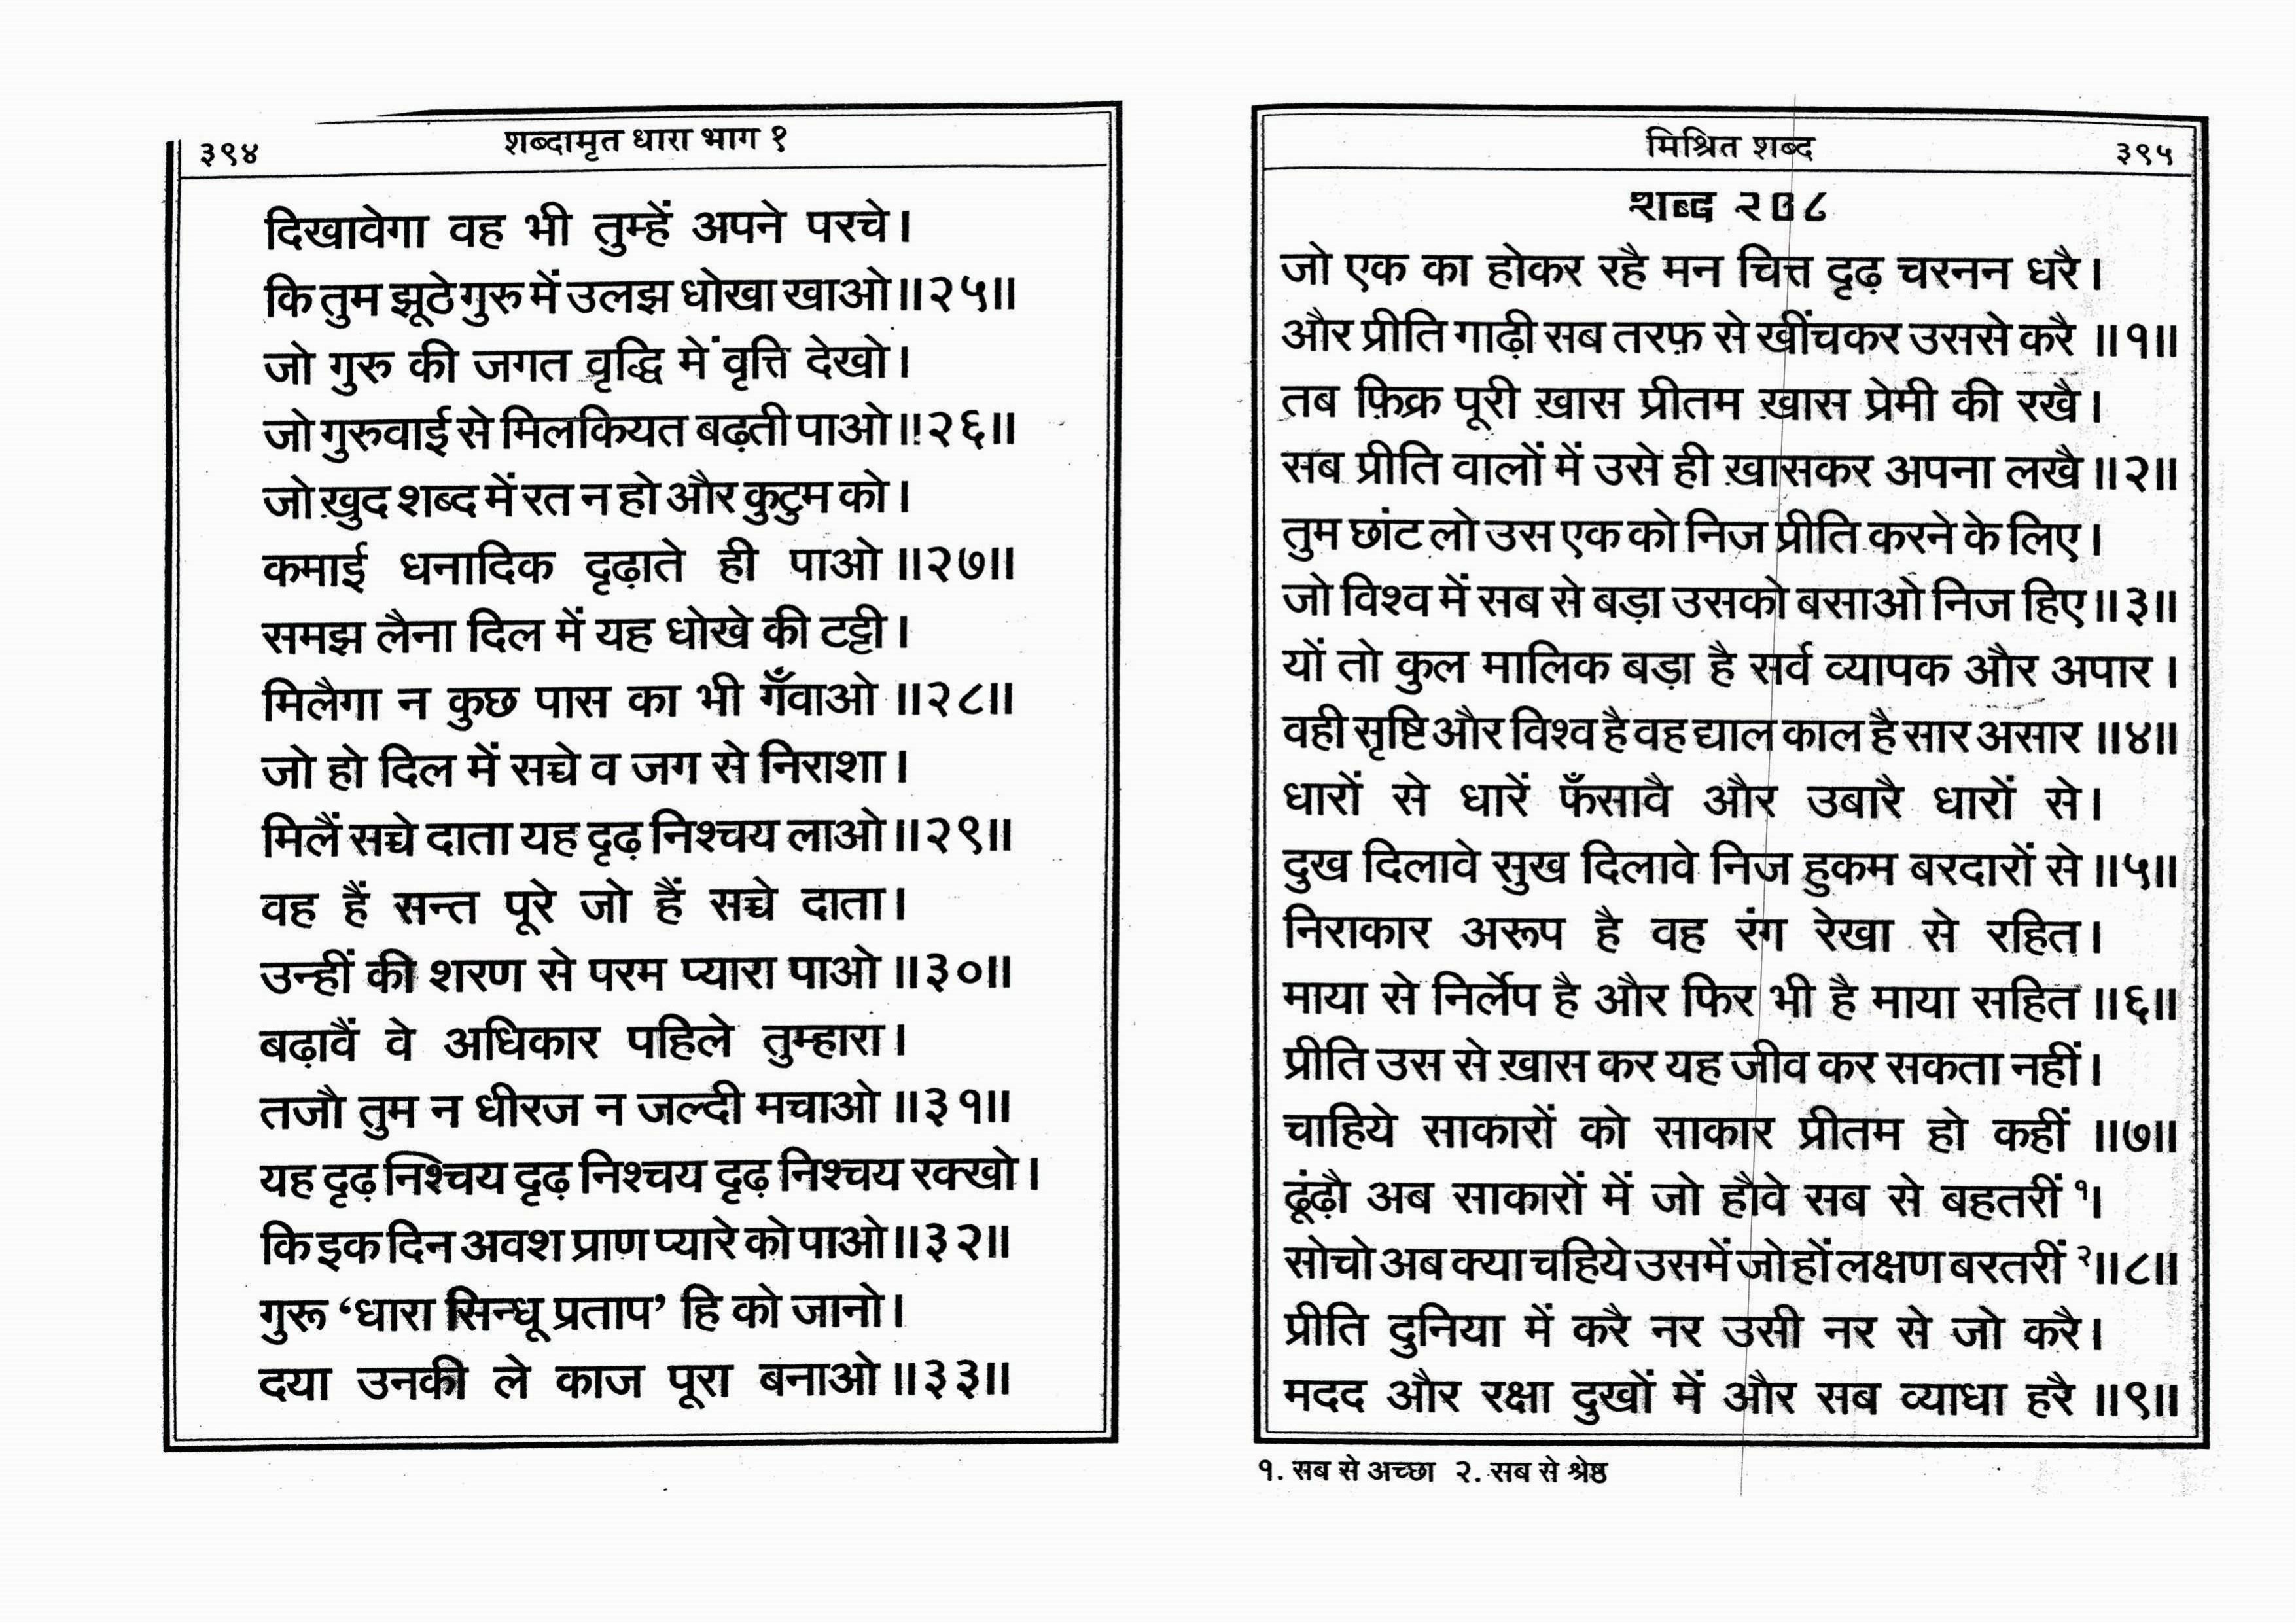 ३९४
शब्दामृत धारा भाग १
दिखावेगा वह भी तुम्हें अपने परचे।
कि तुम झूठे गुरु में उलझ धोखा खाओ॥२५॥
जो गुरु की जगत वृद्धि में वृत्ति देखो।
जो गुरुवाई से मिलकियत बढ़ती पाओ॥२६॥
जो ख़ुद शब्द में रत न हो और कुटुम को।
कमाई धनादिक दृढ़ाते ही पाओ॥२७॥
समझ लैना दिल में यह धोखे की टट्टी।
मिलैगा न कुछ पास का भी गँवाओ॥२८॥
जो हो दिल में सच्चे व जग से निराशा।
मिलैं सच्चे दाता यह दृढ़ निश्चय लाओ॥२९॥
वह हैं सन्त पूरे जो हैं सच्चे दाता।
उन्हीं की शरण से परम प्यारा पाओ॥३०॥
बढ़ावैं वे अधिकार पहिले तुम्हारा।
तजौ तुम न धीरज न जल्दी मचाओ॥३१॥
यह दृढ़ निश्चय दृढ़ निश्चय दृढ़ निश्चय रक्खो।
कि इक दिन अवश प्राण प्यारे को पाओ॥३२॥
गुरू ‘धारा सिन्धू प्रताप’ हि को जानो।
दया उनकी ले काज पूरा बनाओ॥३३॥
मिश्रित शब्द
३९५
शब्द २०८
जो एक का होकर रहै मन चित्त दृढ़ चरनन धरै।
और प्रीति गाढ़ी सब तरफ़ से खींचकर उससे करै॥१॥
तब फ़िक्र पूरी ख़ास प्रीतम ख़ास प्रेमी की रखै।
सब प्रीति वालों में उसे ही ख़ासकर अपना लखै॥२॥
तुम छांट लो उस एक को निज प्रीति करने के लिए।
जो विश्व में सब से बड़ा उसको बसाओ निज हिए॥३॥
यों तो कुल मालिक बड़ा है सर्व व्यापक और अपार।
वही सृष्टि और विश्व है वह द्याल काल है सार असार॥४॥
धारों से धारें फँसावै और उबारै धारों से।
दुख दिलावे सुख दिलावे निज हुकम बरदारों से॥५॥
निराकार अरूप है वह रंग रेखा से रहित।
माया से निर्लेप है और फिर भी है माया सहित॥६॥
प्रीति उस से ख़ास कर यह जीव कर सकता नहीं।
चाहिये साकारों को साकार प्रीतम हो कहीं॥७॥
ढूंढ़ौ अब साकारों में जो हौवे सब से बहतरीं १।
सोचो अब क्या चहिये उसमें जो हों लक्षण बरतरीं २॥८॥
प्रीति दुनिया में करै नर उसी नर से जो करै।
मदद और रक्षा दुखों में और सब व्याधा हरै॥९॥
१. सब से अच्छा २. सब से श्रेष्ठ